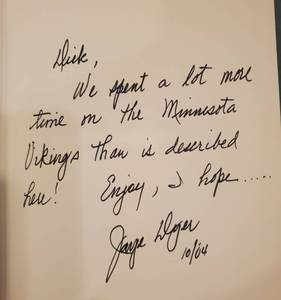 Dick,
We spent a lot more
time on the Minnesota
Vikings than is described
here! Enjoy, I hope.....
Dyer
10/04